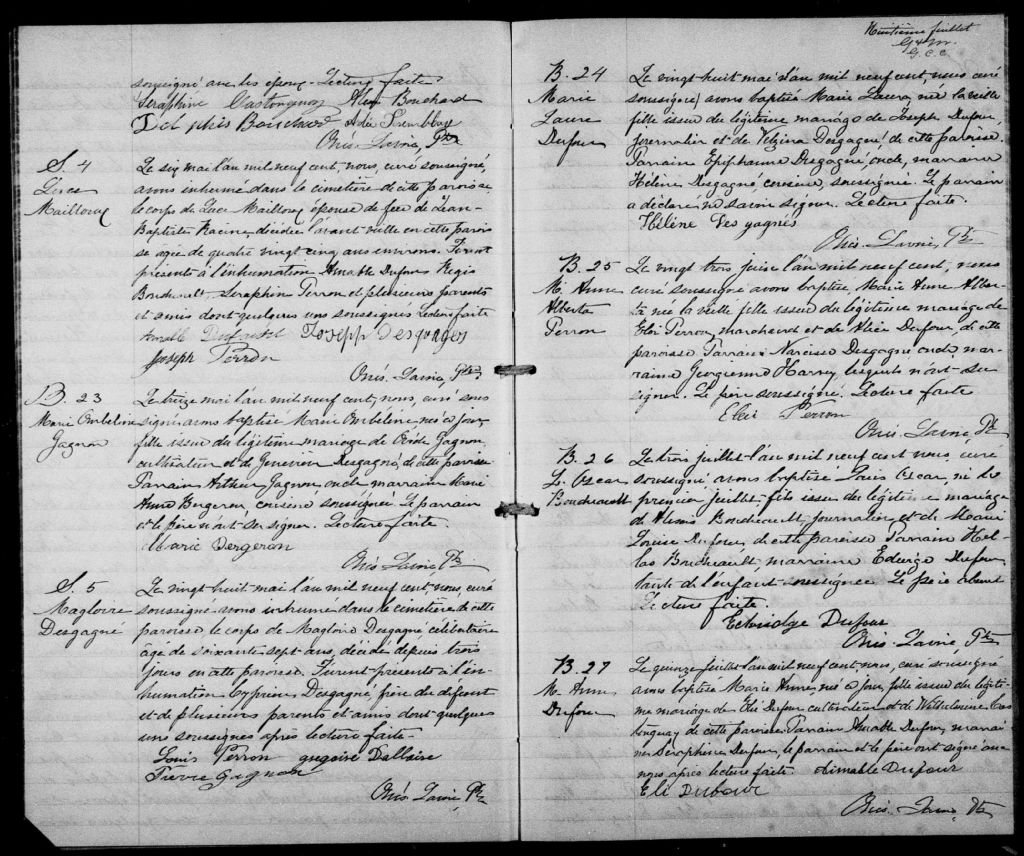 soussigné avec les époux. Lecture faite
Seraphine Castonguay Alex Bouchard
Delphis Bouchard Adée Tremblay
Onés. Lavoie, Ptre
S. 4
Luce
Mailloux
Le six mai l'an mil neuf cent, nous, curé soussigné,
avons inhumé dans le cimetière de cette paroisse
le corps de Luce Mailloux épouse de feu de Jean-
Baptiste Racine, décédée l'avant veille en cette parois
se agée de quatre vingt cinq ans environs. Furent
présents à l'inhumation Amable Dufour Régis
Boudreault, Seraphin Perron et plusieurs parents
et amis dont quelques uns soussignés Lecture faite
Amable Dufour Joseph Desgagnés
Joseph Perron
Onés. Lavoie, Ptre
B. 23
Marie Ombeline
Gagnon
Le treize mai l'an mil neuf cent, nous, curé sous
signé avons baptisé Marie Ombeline, née ce jour,
fille issue du légitime mariage de Gagnon,
cultivateur et de Geneviève Desgagné, de cette paroisse
Parrain Arthur Gagnon oncle marraine Marie
Anne Bergeron, cousine soussignée. Le parrain
et le père n'ont su signer. Lecture faite.
Marie Bergeron
Onés. Lavoie Ptre
S. 5
Magloire
Desgagné
Le vingt huit mai l'an mil neuf cent, nous, curé
soussigné avons inhumé dans le cimetière de cette
paroisse, le corps de Magloire Desgagné célibataire
âgé de soixante sept ans, décédé depuis trois
jours en cette paroisse. Furent présents à l'in-
humation Cyprien Desgagné, frère du défunt
et de plusieurs parents et amis dont quelques
uns soussignés après lecture faite.
Louis Perron gregoire Dallaire
Pierre Gagnon
Onés. Lavoie, Ptre
Huitième feuillet
G. C. C.
B. 24
Marie
Laure
Dufour
Le vingt huit mai l'an mil neuf cent, nous curé
soussigné, avons baptisé Marie Laure, née la veille
fille issue du légitime mariage de Joseph Dufour,
journalier et de Vézina Desgagné, de cette paroisse.
Parrain Epiphanne Desgagné, oncle, marraine
Hélène Desgagné, cousine, soussignée. Le parrain
a déclaré ne savoir signer. Lecture faite.
Hélène Des gagnés
Onés. Lavoie, Ptre
B. 25
M. Anne
Alberta
Perron
Le vingt trois juin l'an mil neuf cent, nous
curé soussigné avons baptisé Marie Anne Alber
ta née la veille fille issue du légitime mariage de
Eloi Perron, marchand et de Alice Dufour, de cette
paroisse Parrain Narcisse Desgagné oncle mar-
raine Georgienne Harvey lesquels n'ont su
signer. Le père soussigné. Lecture faite
Eloi Perron
Onés. Lavoie, Ptre
B. 26
Ls. Oscar
Boudreault
Le trois juillet l'an mil neuf cent nous curé
soussigné, avons baptisé Louis Oscar, né le
premier juillet fils issu du légitime mariage
de Alexis Boudreault, journalier et de Marie
Louise Dufour, de cette paroisse Parrain
Boudreault, marraine Edwige Dufour
tante de l'enfant soussignée. Le père absent
Lecture faite.
Edwidge Dufour
Onés. Lavoie, Ptre
B. 27
M. Anne
Dufour
Le quinze juillet l'an mil neuf cent nous, curé soussigné
avons baptisé Marie Anne, née ce jour, fille issue du légiti-
me mariage de Eli Dufour cultivateur et de Wilhelmine Cas
tonguay de cette paroisse Parrain Amable Dufour, marrai
ne Séraphine Dufour, le parrain et le père ont signé avec
nous après lecture faite. Aimable Dufour
Eli Dufour
Onés. Lavoie, Ptre